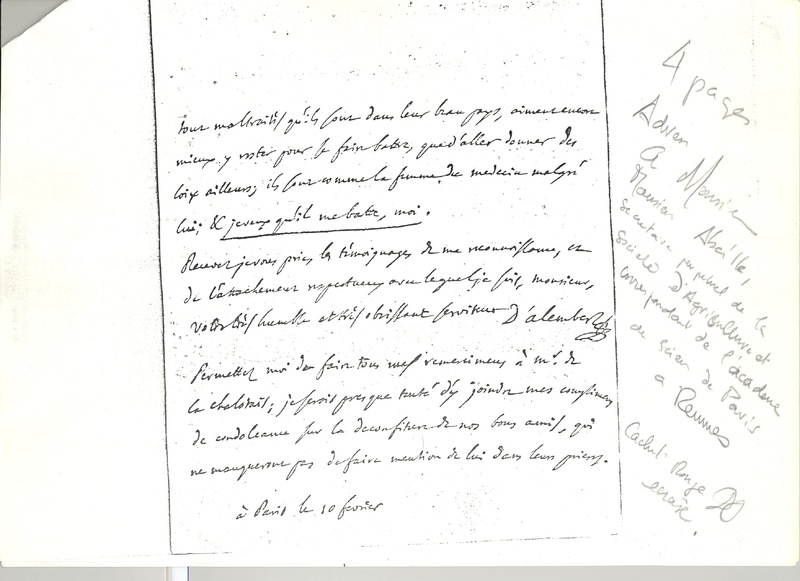 tout maltraités qu'ils sont dans leur beau pays, aiment encore
mieux y rester pour se faire battre, que d'aller donner des
loix ailleurs; ils sont comme la femme de medecin malgré
lui; & je veux qu'il me batte, moi.
Recevez je vous prie les témoignages de ma reconnoissance, et
de l'attachement respectueux avec lequel je suis, monsieur,
votre très humble et très obeissant serviteur D'alembert
Permettez moi de faire tous mes remercimens à mr. de
la chalotais; je serois presque tenté d'y joindre mes complimens
de condoleance sur la deconfiture de nos bons amis, qui
ne manqueront pas de faire mention de lui dans leurs prieres.
à Paris le 10 fevrier
4 pages
A Monsieur
Monsieur Abeille,
secretaire perpetuel de la
société d'Agriculture et
correspondant de l'academie
de scien de Paris
a Rennes
Cachet Rouge